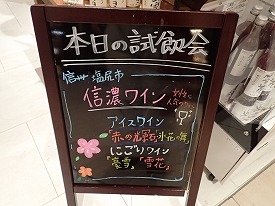 本日の試飲会
信州 塩尻市
信濃ワイン
アイスワイン
「赤の光彩」「氷花の舞」
にごりワイン
「豪雪」「雪花」